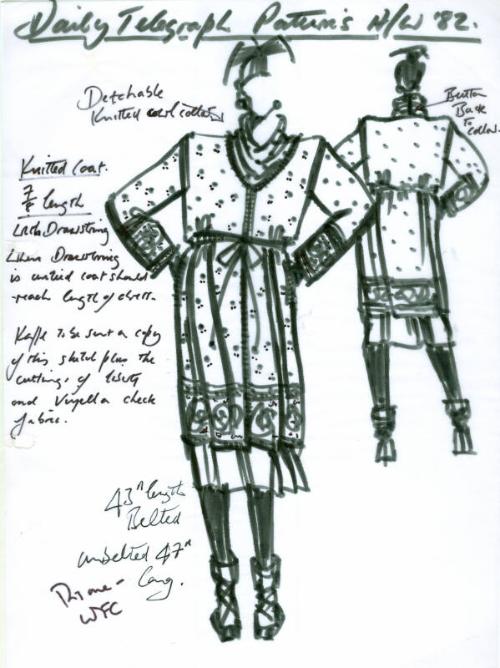 Daily Telegraph Pattern's A/W '82.
Detchable
Knitted cowl collar
Button
Back
To
collar.
Knitted Coat.
7/8 length
With Drawstring
When Drawstring
is untied coat should
reach length of dress.
Kaffe to be sent a copy
of this sketch plus the
cuttings of liberty
and Viyella check
fabric.
43" length
Belted
unbelted 47"
long.
WFC